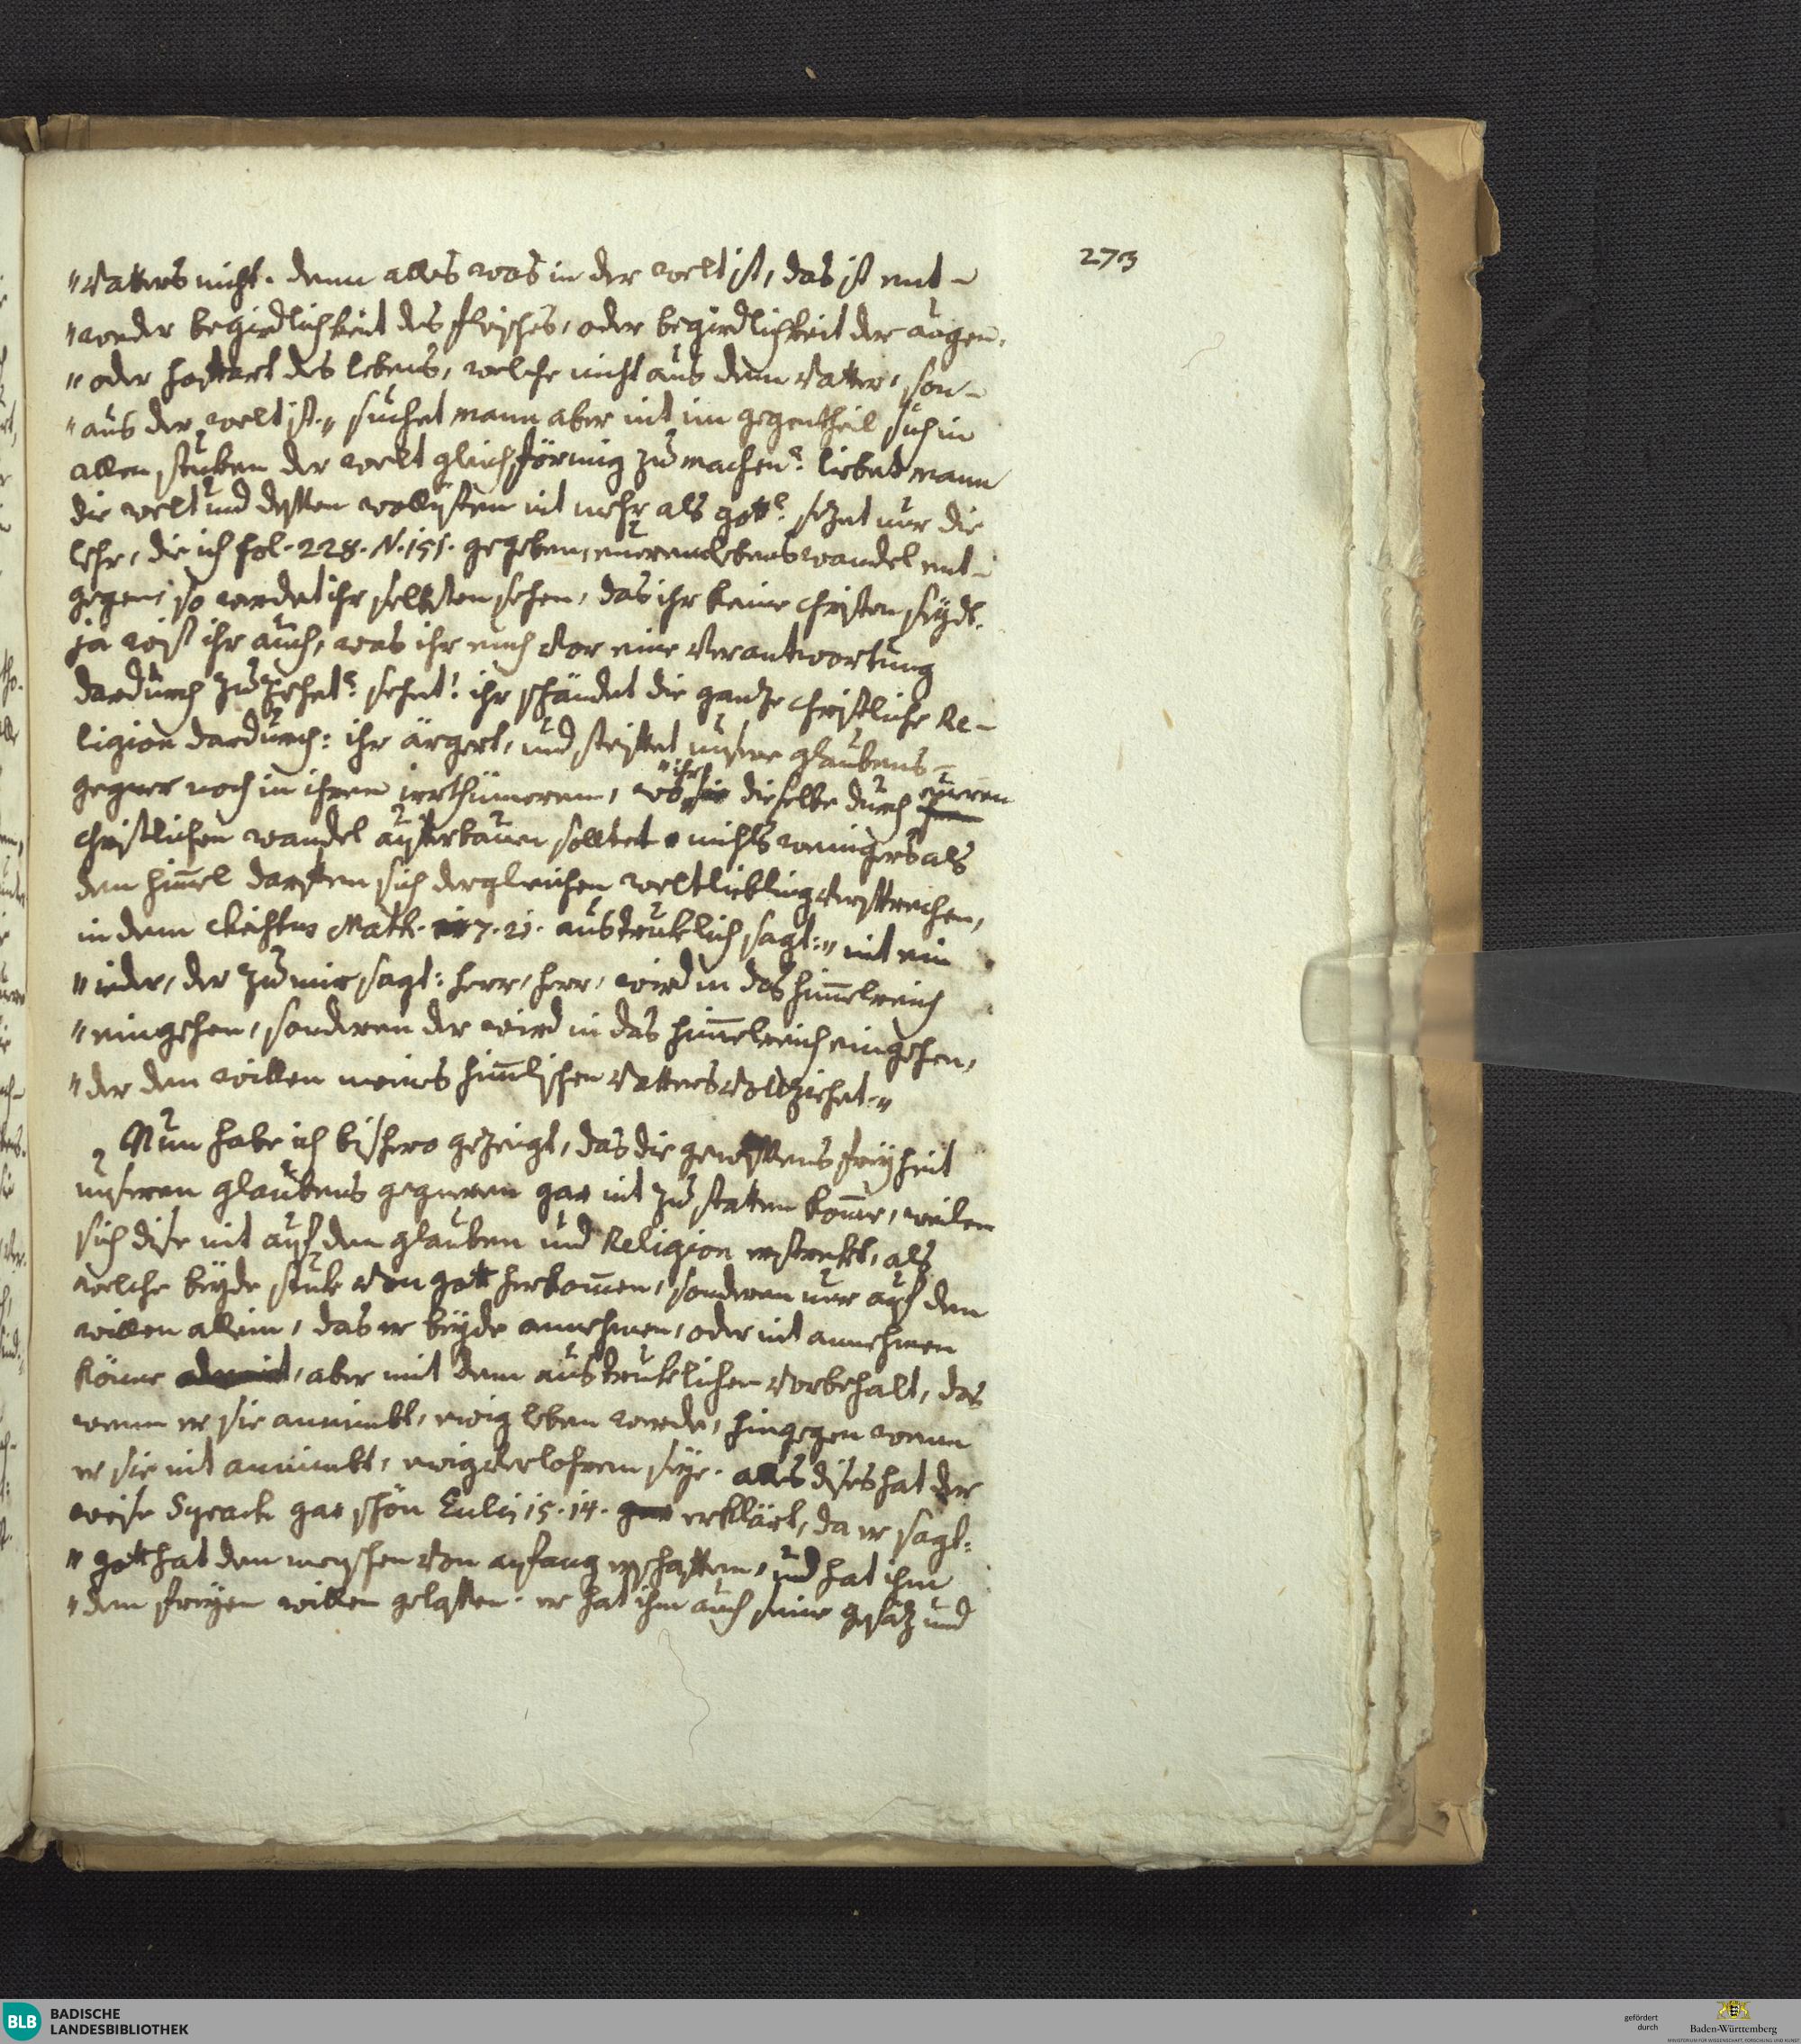 273
"vatters nicht. denn alles was in der welt ist, das ist ent-
"weder begirdlichkeit des fleisches, oder begirdlichkeit der augen,
"oder hoffart des lebens, welche nicht aus dem vatter, son-
"aus der welt ist." suchet mann aber nit im gegentheil sich in
allen stuken der welt gleichförmig zu machen? liebet mann
die welt und dessen wollüsten nit mehr als gott? sezet nur die
lehr, die ich fol. 228. N. 151. gegeben, eueren lebenswandel ent-
gegen, so werdet ihr selbsten sehen, das ihr keine christen seydt.
ja wist ihr auch, was ihr euch vor eine verantwortung
dardurch zuziehet? sehet! ihr schändet die gantze christliche Re-
ligion dardurch: ihr ärgert, und steiffet unsere glaubens-
gegner noch in ihren irrthümeren, wo "ihr dieselbe durch eueren
christlichen wandel aufferbauen solltet. nichts weniger als
den him̄el darffen sich dergleichen weltliebling versprechen,
in dem Christus Math. 7. 21. austruklich sagt: "nit ein
"ieder, der zu mir sagt: herr, herr, wird in das him̄elreich
"eingehen, sonderen der wird in das him̄elreich eingehen,
"der den willen meines him̄lischen vatters vollziehet."
Nun habe ich bishero gezeigt, das die gewissens freyheit
unseren glaubens gegneren gar nit zu statten kom̄e, weilen
sich dise nit auf den glauben und Religion erstrekt, als
welche beyde stuk von gott herkom̄en, sonderen nur auf den
willen allein, das er beyde annehmen, oder nit annehmen
könne, aber mit dem austruklichen vorbehalt, das
wenn er sie annimbt, ewig leben werde, hingegen wenn
er sie nit annimbt, ewig verlohren seye. alles dises hat der
weise Syrach gar schön Eccli 15. 14. erklärt, da er sagt:
"gott hat den menschen von anfang erschaffen, und hat ihm
"den freyen willen gelassen. er hat ihm auch seine gesäz und
BLB BADISCHE
LANDESBIBLIOTHEK
gefördert
durch
Baden-Württemberg
MINISTERIUM FÜR WISSENSCHAFT, FORSCHUNG UND KUNST